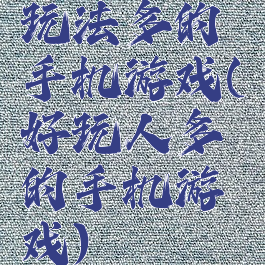 玩法多的
手机游戏(
好玩人多
的手机游
戏)